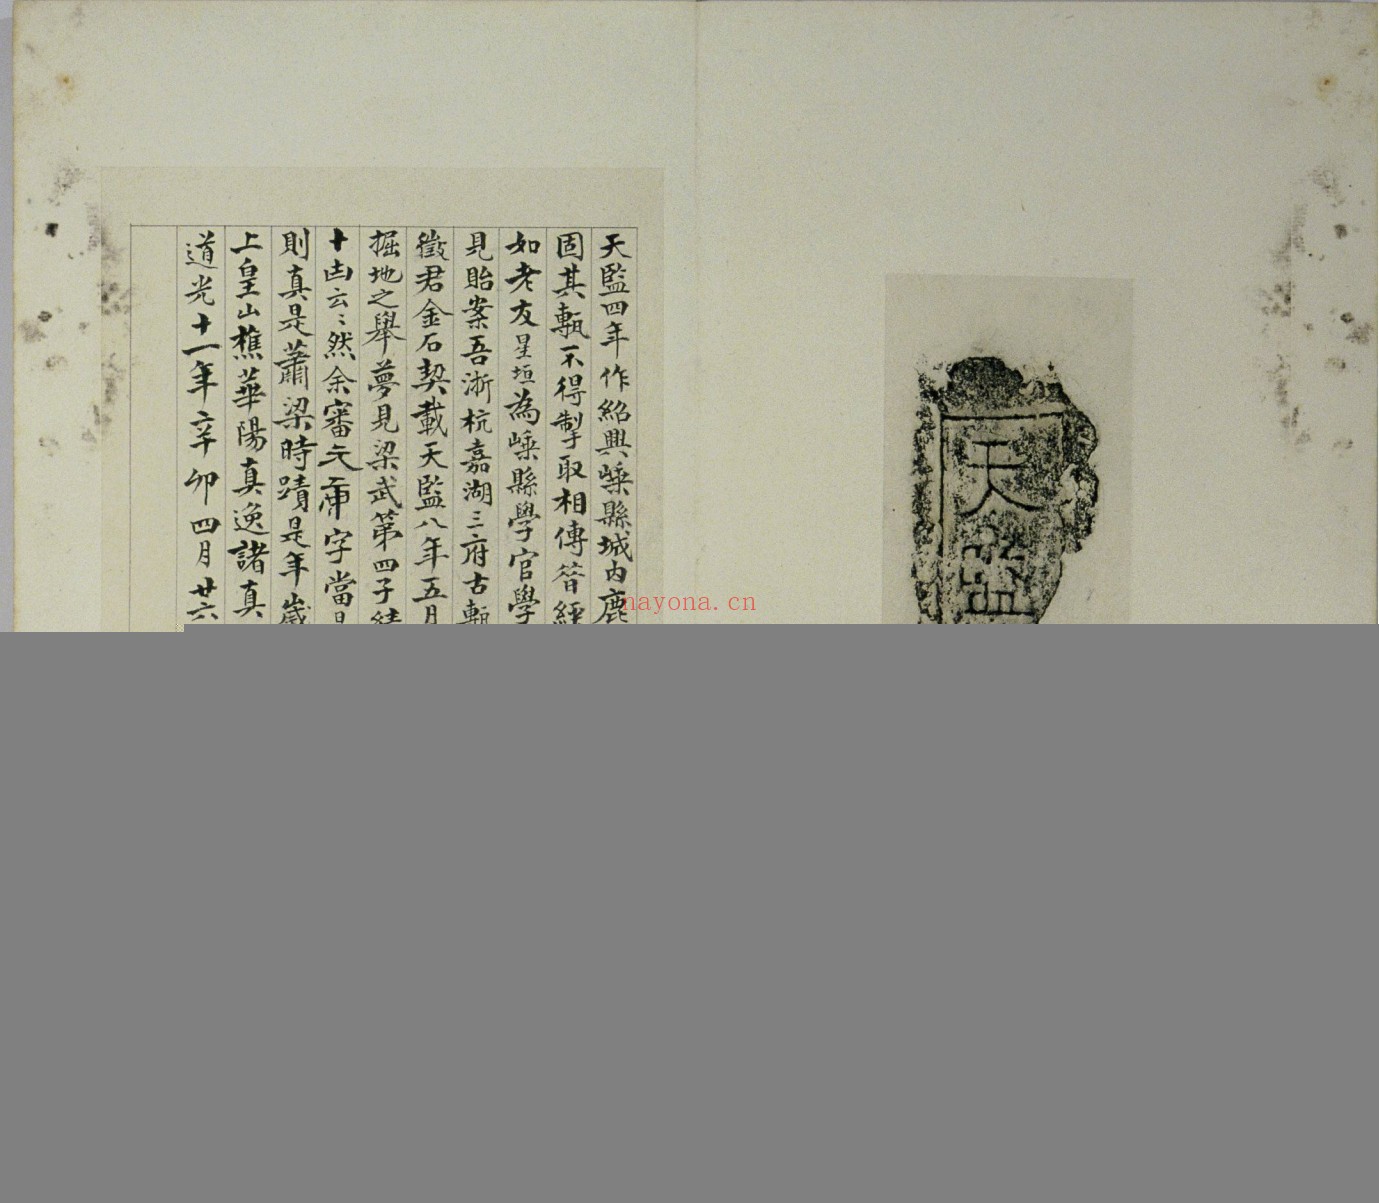 天
監
天監四年作紹興嵊縣城内鹿
固其甎不得掣取相傳晉經
如老友星垣為嵊縣學官學
見貽案吾浙杭嘉湖三府古甎
徵君金石契載天監八年五月
掘地之舉夢見梁武第四子績
十凷云〻然余審元康字當是
則真是蕭梁時蹟是年歲
上皇山樵華陽真逸諸真
道光十一年辛卯四月廿六
nayona.cn